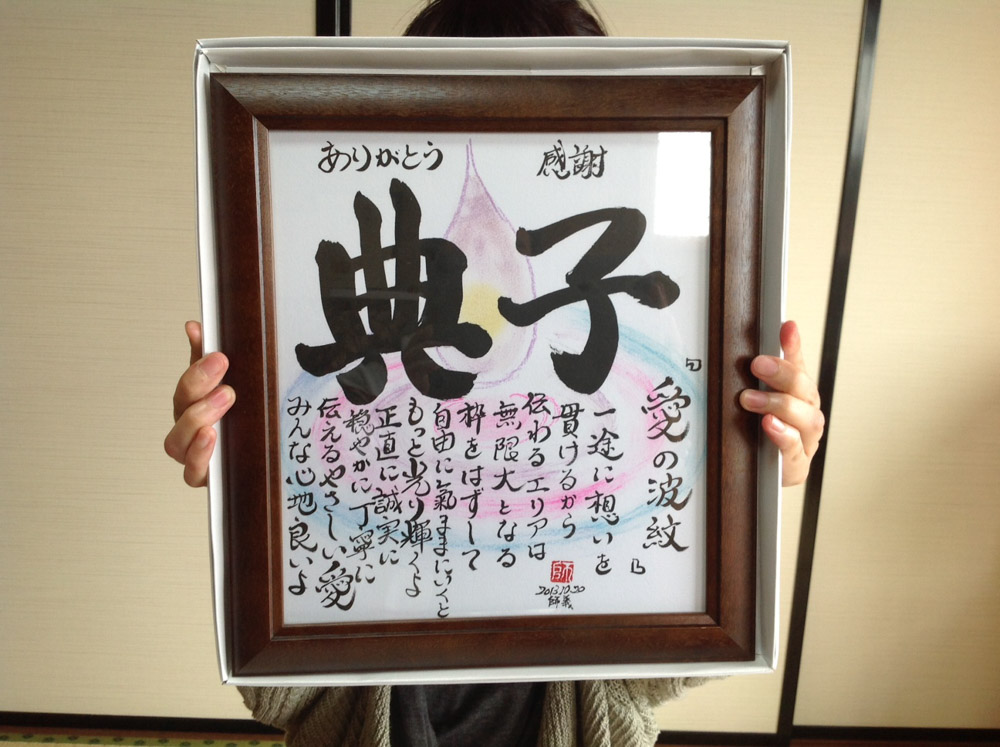 感謝
ありがとう
典子
『愛の波紋』
一途に想いを
貫けるから
伝わるエリアは
無限大となる
枠をはずして
自由に氣ままにいくと
もっと光り輝くよ
正直に誠実に
穏やかに丁寧に
伝えるやさしい愛
みんな心地良いよ
師
2013.10.20
師義